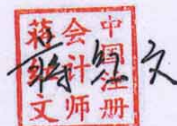 中国注册
会计师
蒋 文
蒋 文